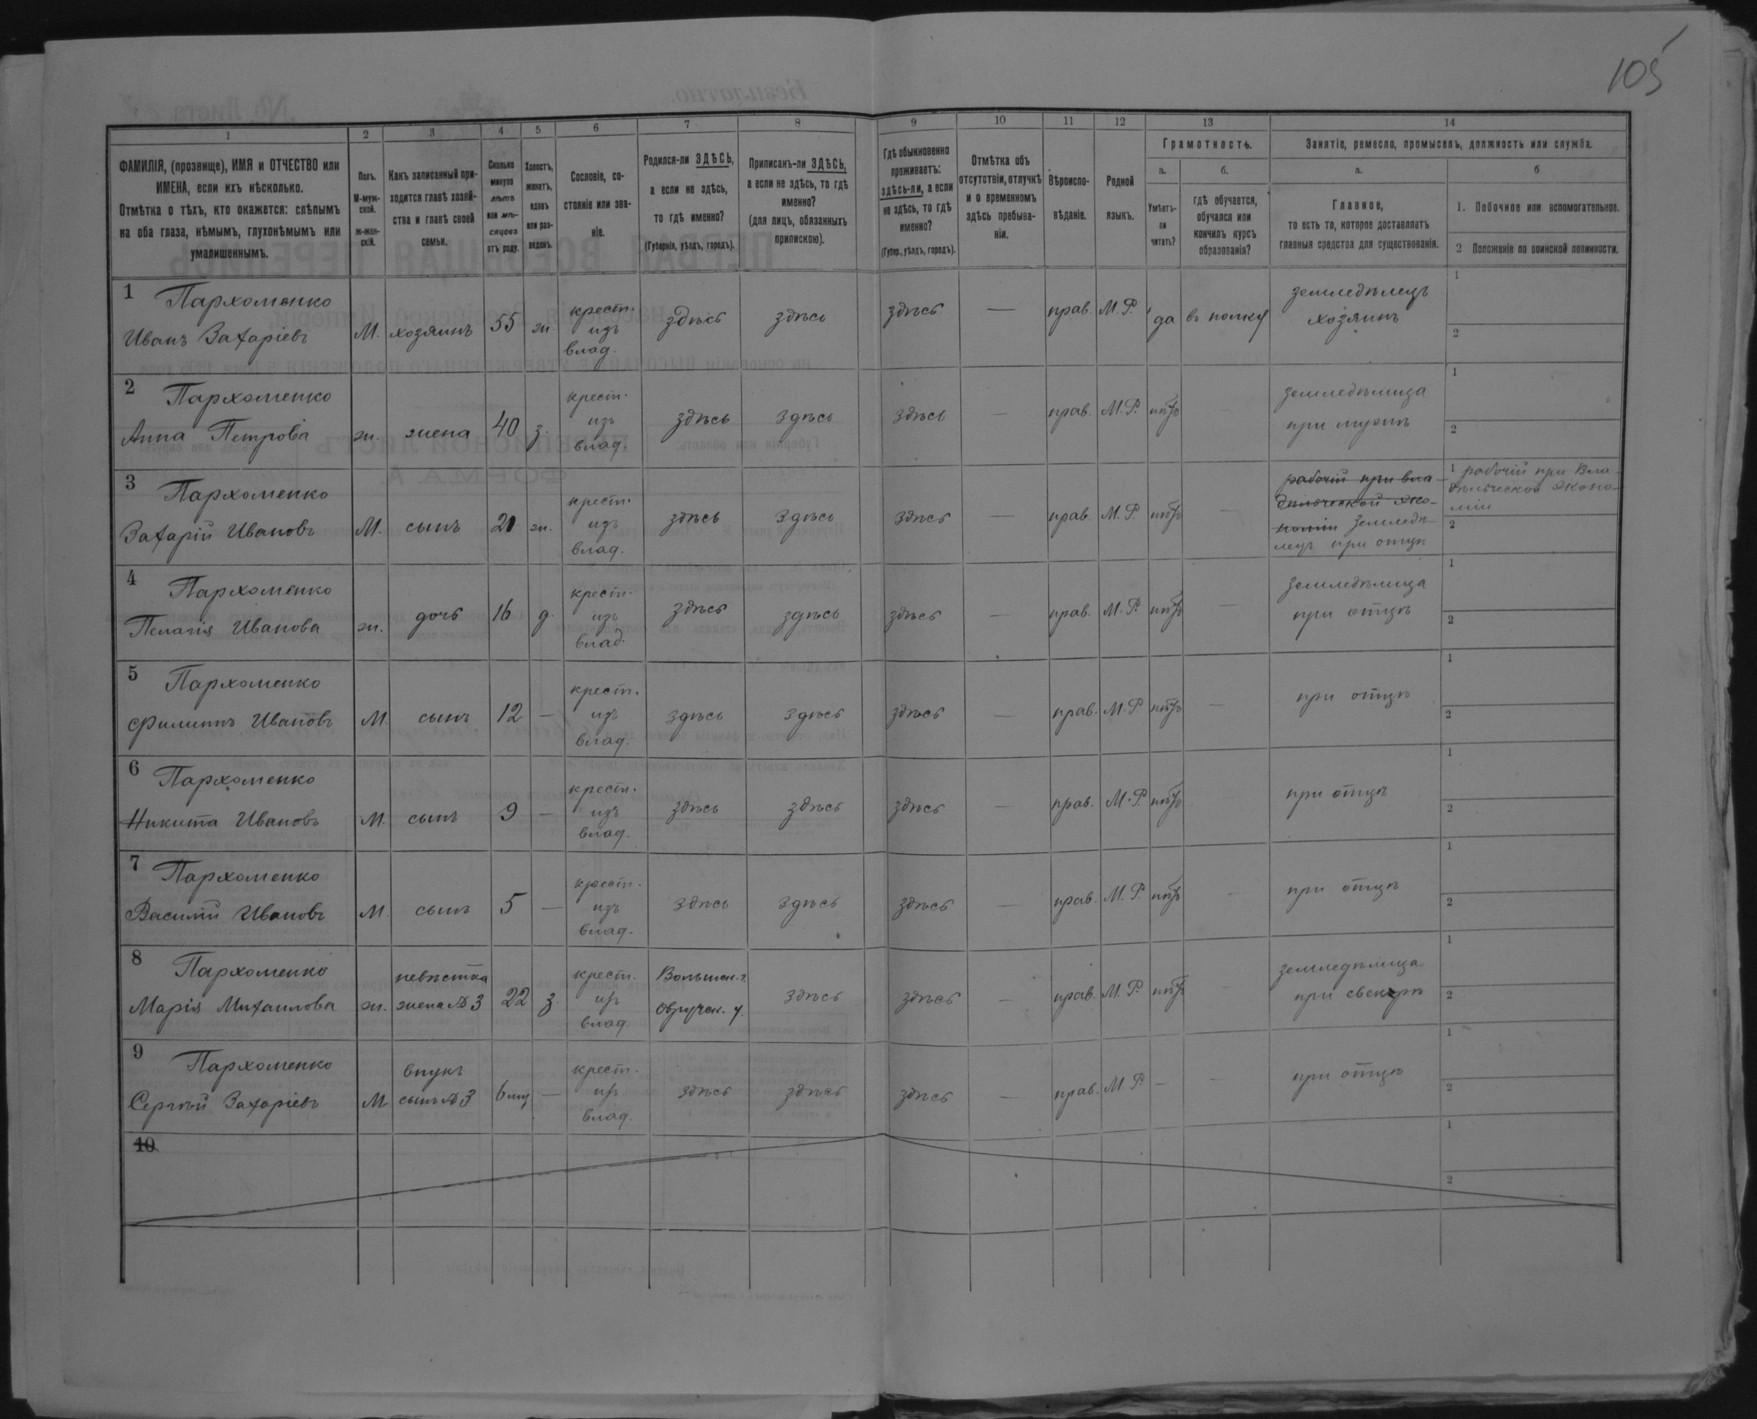 105
1 2 3 4 5 6 7 8 9 10 11 12 13 14
ФАМИЛІЯ, (прозвище), ИМЯ и ОТЧЕСТВО или
ИМЕНА, если ихъ нѣсколько.
Отмѣтка о тѣхъ, кто окажется: слѣпымъ
на оба глаза, нѣмымъ, глухонѣмымъ или
умалишеннымъ.
Полъ.
М-муж-
ской.
ж-жен-
скій.
Какъ записанный при-
ходится главѣ хозяй-
ства и главѣ своей
семьи.
Сколько
минуло
лѣтъ
или мѣ-
сяцевъ
отъ роду.
Холостъ,
женатъ,
вдовъ
или раз-
веденъ.
Сословіе, со-
стояніе или зва-
ніе.
Родился-ли ЗДѢСЬ,
а если не здѣсь,
то гдѣ именно?
(Губернія, уѣздъ, городъ).
Приписанъ-ли ЗДѢСЬ,
а если не здѣсь, то гдѣ
именно?
(для лицъ, обязанныхъ
припискою).
Гдѣ обыкновенно
проживаетъ:
здѣсь-ли, а если
не здѣсь, то гдѣ
именно?
(Губер., уѣздъ, городъ).
Отмѣтка объ
отсутствіи, отлучкѣ
и о временномъ
здѣсь пребыва-
ніи.
Вѣроиспо-
вѣданіе.
Родной
языкъ.
Грамотность.
а.
Умѣетъ-
ли
читать?
б.
гдѣ обучается,
обучался или
кончилъ курсъ
образованія?
Занятіе, ремесло, промыселъ, должность или служба.
а.
Главное,
то есть то, которое доставляетъ
главныя средства для существованія.
б
1. Побочное или вспомогательное.
2 Положеніе по воинской повинности.
1 Пархоменко
Иванъ Захаріевъ М. хозяинъ 55 ж крест. изъ влад. здѣсь здѣсь здѣсь — прав. М.Р. да въ полку земледѣлецъ хозяинъ 1 2
2 Пархоменко
Анна Петрова ж. жена 40 з. крест. изъ влад. здѣсь здѣсь здѣсь — прав. М.Р. нѣтъ — земледѣлица при мужѣ 1 2
3 Пархоменко
Захарій Ивановъ М. сынъ 21 ж. крест. изъ влад. здѣсь здѣсь здѣсь — прав. М.Р. нѣтъ — рабочій при вла-
дѣльческой эко-
номіи земледѣ-
лецъ при отцѣ
1 рабочій при Вла-
дѣльческой эконо-
міи
2
4 Пархоменко
Пелагія Иванова ж. дочь 16 д. крест. изъ влад. здѣсь здѣсь здѣсь — прав. М.Р. нѣтъ — земледѣлица при отцѣ 1 2
5 Пархоменко
Филиппъ Ивановъ М. сынъ 12 — крест. изъ влад. здѣсь здѣсь здѣсь — прав. М.Р. нѣтъ — при отцѣ 1 2
6 Пархоменко
Никита Ивановъ М. сынъ 9 — крест. изъ влад. здѣсь здѣсь здѣсь — прав. М.Р. нѣтъ при отцѣ 1 2
7 Пархоменко
Василій Ивановъ М. сынъ 5 — крест. изъ влад. здѣсь здѣсь здѣсь — прав. М.Р. нѣтъ — при отцѣ 1 2
8 Пархоменко
Марія Михаилова ж. невѣстка жена №3 22 з. крест. изъ влад. Волынск. г. Овручск. у. здѣсь здѣсь — прав. М.Р. нѣтъ — земледѣлица при свекрѣ 1 2
9 Пархоменко
Сергѣй Захаріевъ М внукъ сынъ №3 6 мц — крест. изъ влад. здѣсь здѣсь здѣсь — прав. М.Р. — — при отцѣ 1 2
10 1 2